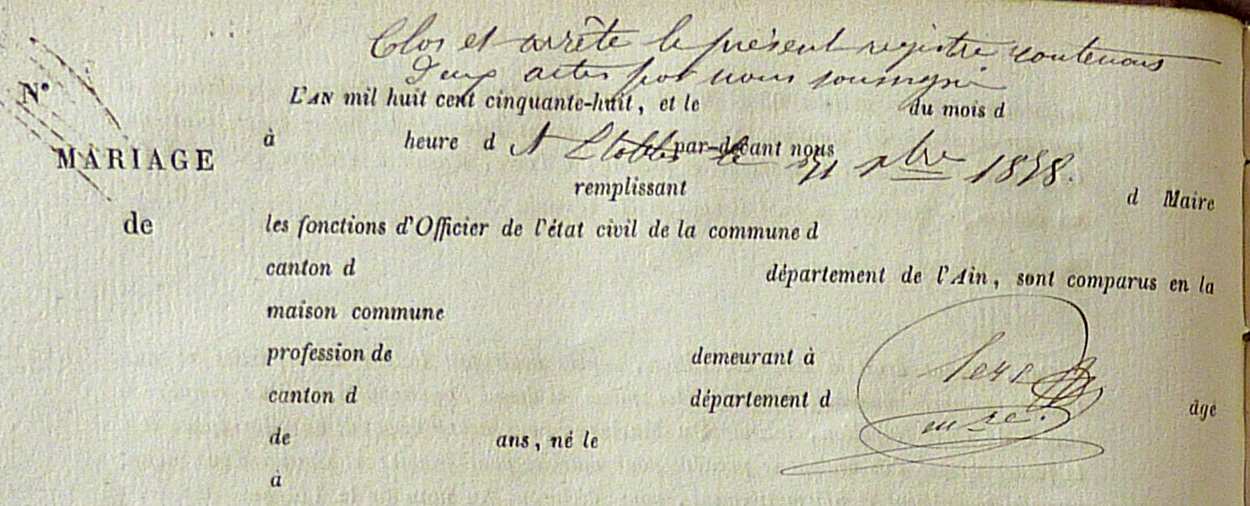 Clos et arrêté le présent registre contenans
deux actes par nous soussigné
N°
L'AN mil huit cent cinquante-huit, et le du mois d
à heure d par-devant nous
A le 31 xbre 1858.
MARIAGE
remplissant
d Maire
de
les fonctions d'Officier de l'état civil de la commune d
canton d département de l'Ain, sont comparus en la
maison commune
profession de demeurant à
canton d département d âgé
de ans, né le
à